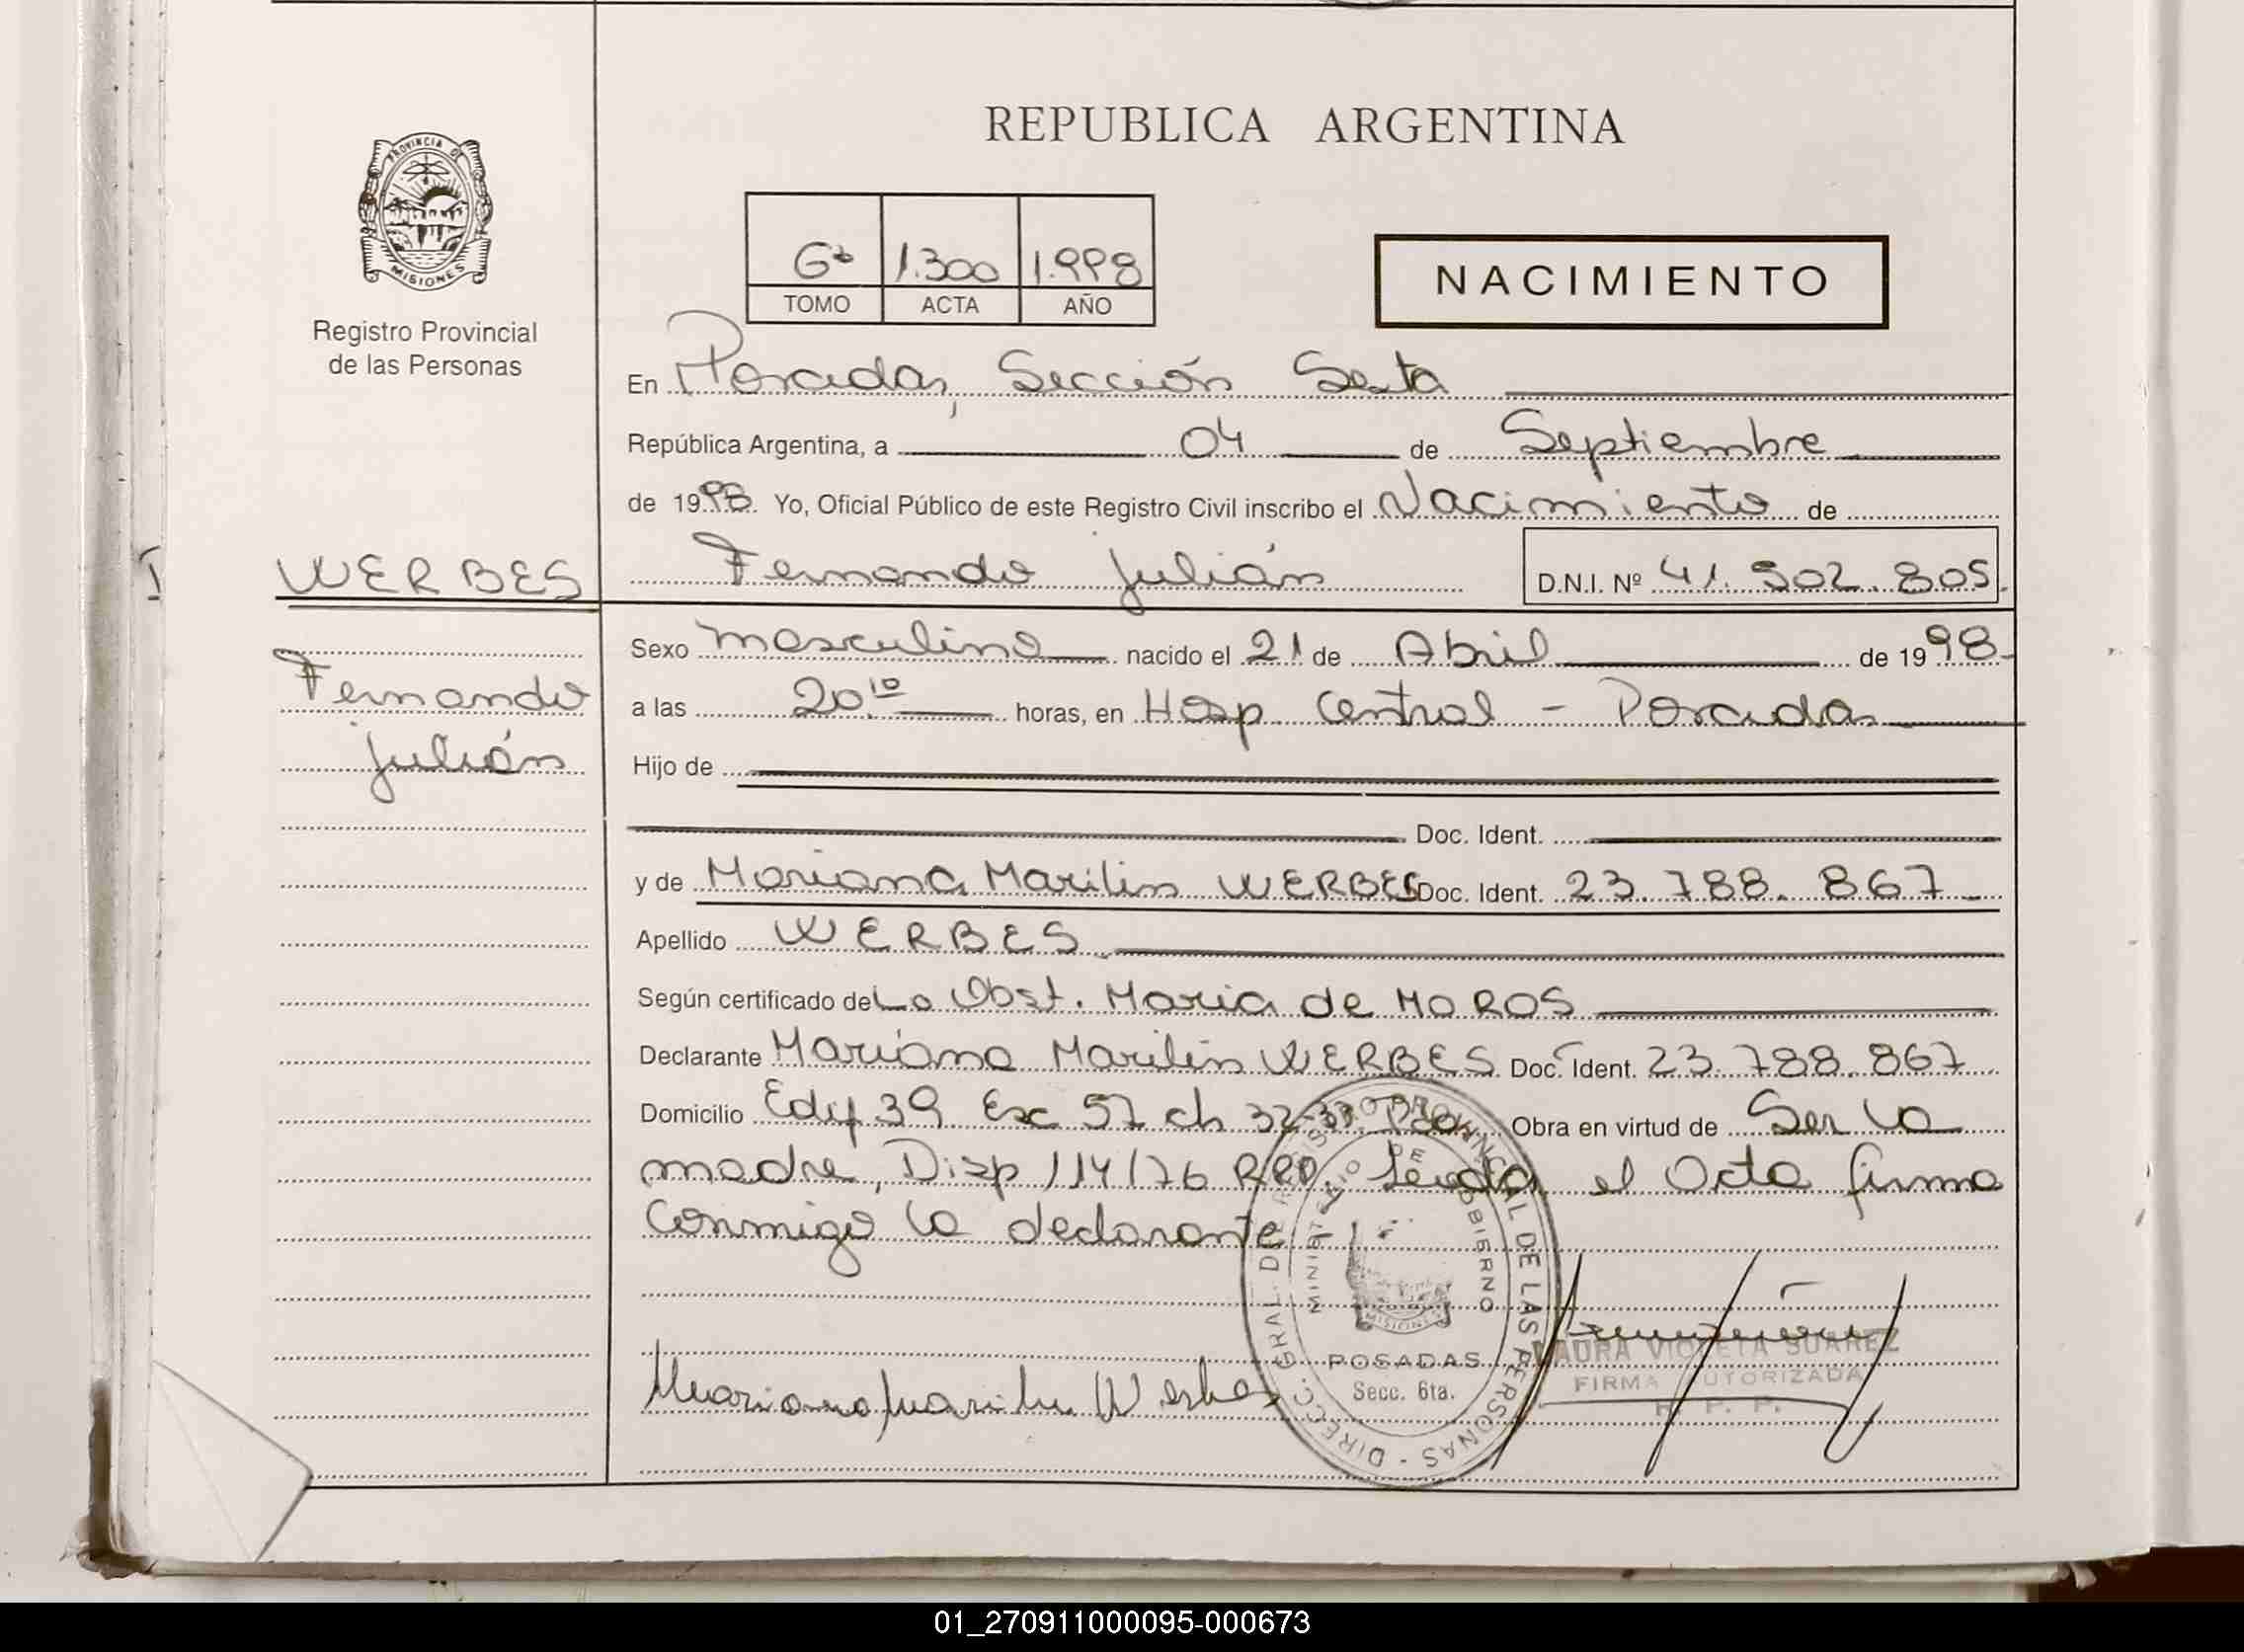 REPUBLICA ARGENTINA
PROVINCIA DE
MISIONES
Registro Provincial
de las Personas
6º 1.300 1.998
TOMO ACTA AÑO
NACIMIENTO
En Posadas, Sección Sexta
República Argentina, a 04 de Septiembre
de 1998. Yo, Oficial Público de este Registro Civil inscribo el Nacimiento de
WERBES
Fernando Julián D.N.I. Nº 41.502.805.
Fernando
Julián
Sexo masculino nacido el 21 de Abril de 1998
a las 20.10 horas, en Hosp. Central - Posadas
Hijo de
Doc. Ident.
y de Mariana Marilin WERBES Doc. Ident. 23.788.867
Apellido WERBES
Según certificado de La Obst. Maria de MOROS
Declarante Mariana Marilin WERBES Doc. Ident. 23.788.867
Domicilio Edif 39 Esc 57 ch 32-33. Pdas. Obra en virtud de Ser la
madre, Disp 114/76 RPP. Leida el Acta firma
conmigo la declarante
DIRECC. GRAL. DE REGISTRO PROVINCIAL DE LAS PERSONAS
MINISTERIO DE GOBIERNO
MISIONES
POSADAS
Secc. 6ta.
Mariana Marilin Werbes
LAURA VIOLETA SUAREZ
FIRMA AUTORIZADA
R. P. P.
01_270911000095-000673